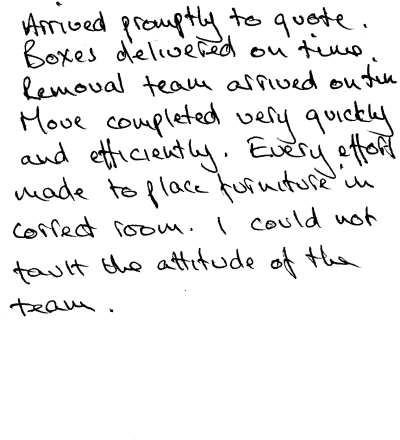 Arrived promptly to quote.
Boxes delivered on time.
Removal team arrived on tim
Move completed very quickly
and efficiently. Every effort
made to place furniture in
correct room. I could not
fault the attitude of the
team.